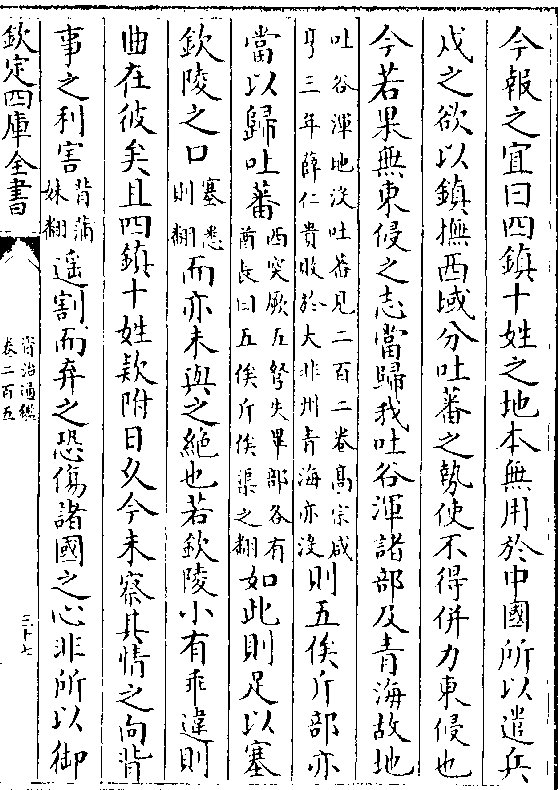 今報之宜曰四鎮十姓之地本無用於中國所以遣兵
戍之欲以鎮撫西域分吐蕃之勢使不得併力東侵也
今若果無東侵之志當歸我吐谷渾諸部及青海故地
吐谷渾地沒吐蕃見二百二卷高宗咸
亨三年薛仁貴敗於大非川青海亦沒
則五俟斤部亦
當以歸吐蕃
西突厥五弩失畢部各有
酋長曰五俟斤俟渠之翻
如此則足以塞
欽陵之口
塞悉
則翻
而亦未與之絶也若欽陵小有乖違則
曲在彼矣且四鎮十姓款附日久今未察其情之向背
事之利害
背蒲
妹翻
遥割而弃之恐傷諸國之心非所以御
欽定四庫全書
資治通鑑
卷二百五
三十七